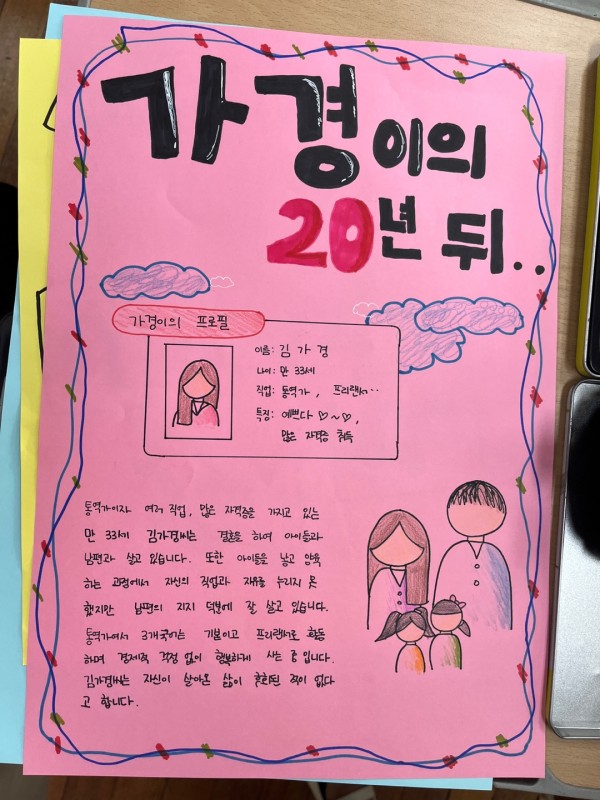 가경이의
20년 뒤..
가경이의 프로필
이름: 김가경
나이: 만 33세
직업: 통역가, 프리랜서..
특징: 예쁘다 ♡~♡,
많은 자격증 취득
통역가이자 여러 직업, 많은 자격증을 가지고 있는
만 33세 김가경씨는 결혼을 하여 아이들과
남편과 살고 있습니다. 또한 아이들을 낳고 양육
하는 과정에서 자신의 직업과 재류를 누리지 못
했지만 남편의 지지 덕분에 잘 살고 있습니다.
통역가여서 3개국어는 기본이고 프리랜서로 활동
하며 경제적 걱정 없이 행복하게 사는 중입니다.
김가경씨는 자신이 살아온 삶이 후회된 적이 없다
고 합니다.